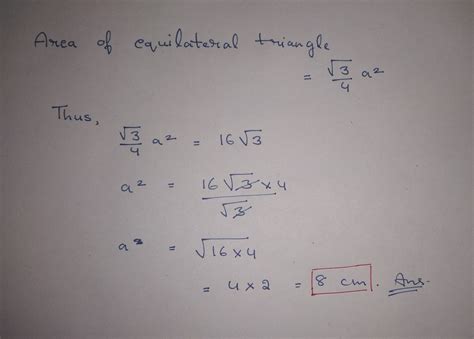 Area of equilateral triangle
= √3/4 a²
Thus,
√3/4 a² = 16√3
a² = 16√3×4/√3
a² = √16×4
= 4×2 = 8 cm. Ans.